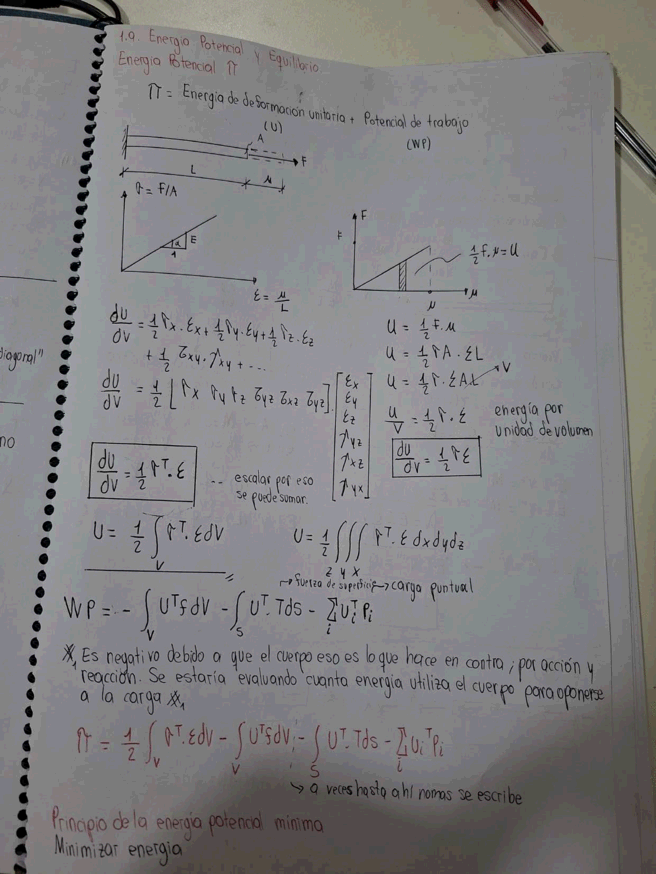 1.9. Energía Potencial y Equilibrio
Energía Potencial π
π = Energía de deformación unitaria + Potencial de trabajo
(U)
(WP)
A
F
L
μ
σ = F/A
E
1
ε = μ/L
F
F
1/2 F.μ = U
μ
μ
dU/dV = 1/2 σx.εx + 1/2 σy.εy + 1/2 σz.εz
+ 1/2 τxy.γxy + ...
dU/dV = 1/2 [σx σy σz τyz τxz τyz].[εx εy εz γyz γxz γyx]
U = 1/2 F.μ
U = 1/2 σA.εL
U = 1/2 σ.εA.L → V
U/V = 1/2 σ.ε
energía por
unidad de volumen
dU/dV = 1/2 σε
dU/dV = 1/2 σᵀ.ε
-- escalar por eso
se puede sumar.
U = 1/2 ∫v σᵀ.εdV
U = 1/2 ∫∫∫ σᵀ.ε dxdydz
z y x
→ fuerza de superficie → carga puntual
WP = - ∫v UᵀfdV - ∫s Uᵀ.Tds - Σi UiᵀPi
※₁ Es negativo debido a que el cuerpo eso es lo que hace en contra, por acción y
reacción. Se estaría evaluando cuanta energía utiliza el cuerpo para oponerse
a la carga ※₁
π = 1/2 ∫v σᵀ.εdV - ∫v UᵀfdV - ∫s Uᵀ.Tds - Σi UiᵀPi
↳ a veces hasta ahí nomas se escribe
Principio de la energía potencial mínima
Minimizar energía
diagonal"
no